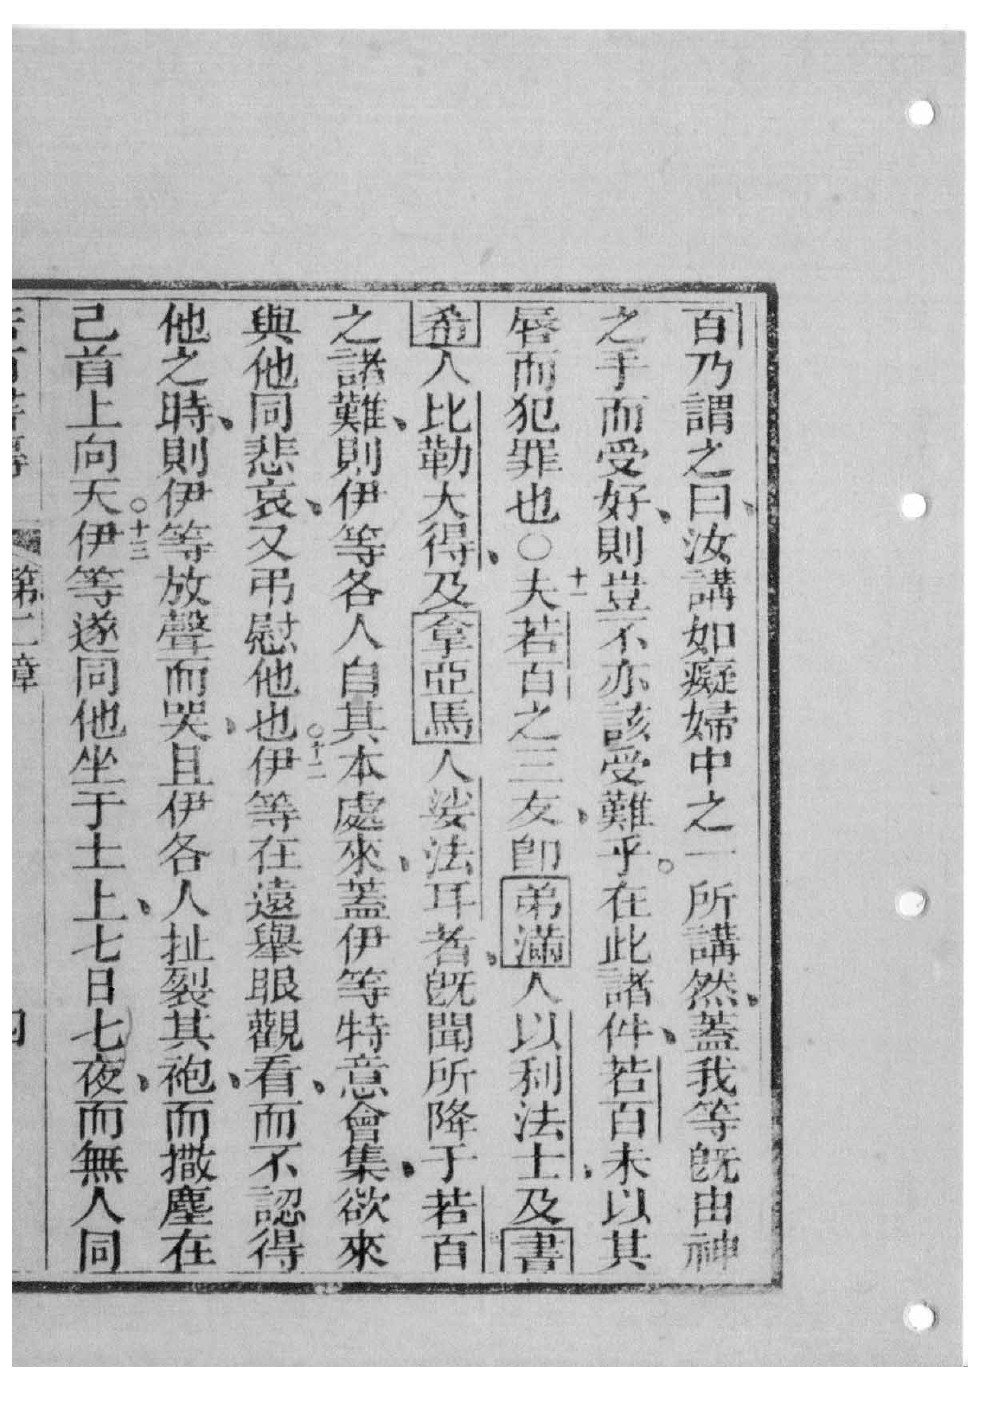 百乃謂之曰、汝講如癡婦中之一所講然、蓋我等旣由神
之手而受好、則豈不亦該受難乎。在此諸件、若百未以其
唇而犯罪也○十一夫若百之三友、卽弟滿人以利法士、及書
希人比勒大得、及拿亞馬人娑法耳者、旣聞所降于若百
之諸難、則伊等各人自其本處來、蓋伊等特意會集、欲來
與他同悲哀、又弔慰他也○十二伊等在遠舉眼觀看、而不認得
他之時、則伊等放聲而哭、且伊各人扯裂其袍、而撒塵在
己首上向天○十三伊等遂同他坐于土上、七日七夜、而無人同
第二章